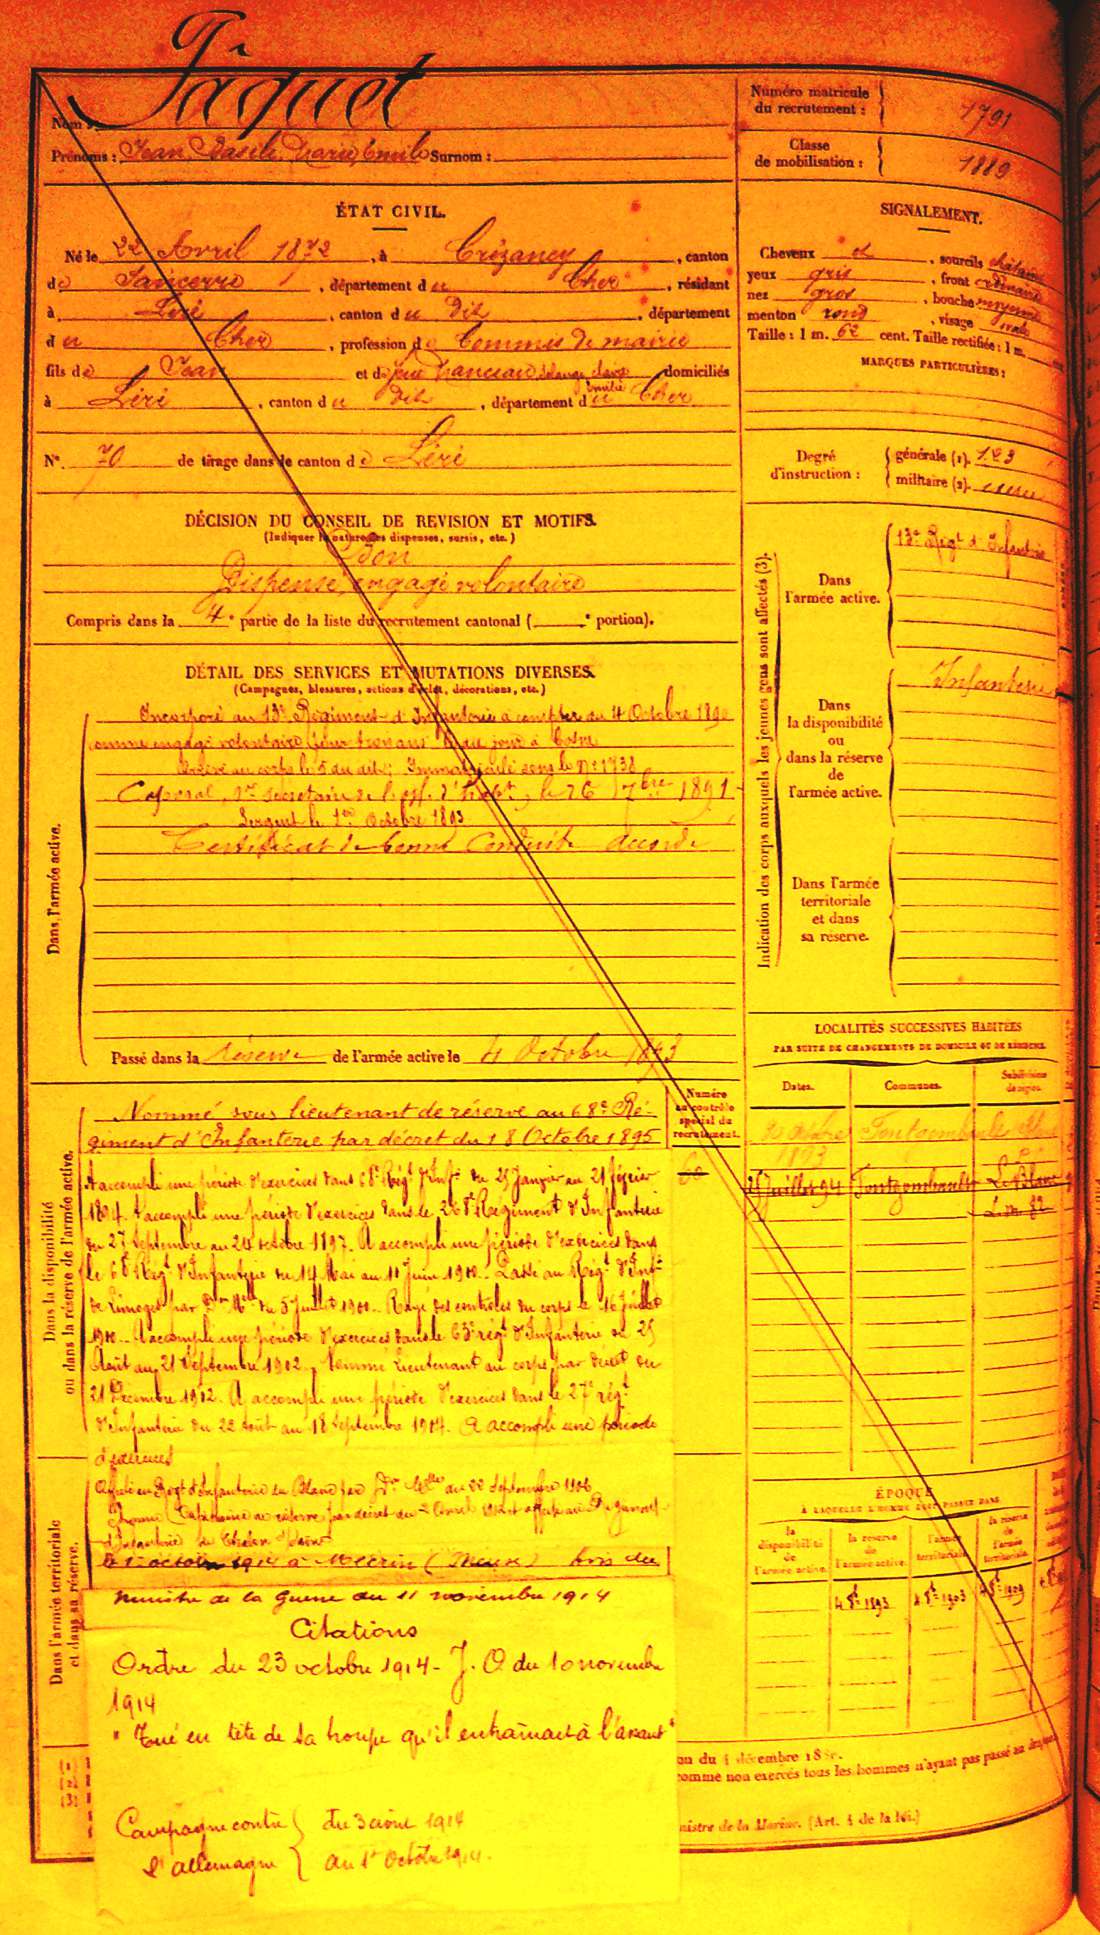 Pâquet
Nom :
Prénoms : Jean, Basile, Marie, Emile Surnom :
Numéro matricule
du recrutement : 1791
Classe
de mobilisation : 1889
ÉTAT CIVIL.
Né le 22 Avril 1872, à Crézancy, canton
de Sancerre, département du Cher, résidant
à Léré, canton du dit, département
du Cher, profession de Commis de mairie
fils de Jean et de Solange Claire domiciliés
Emilie
à Léré, canton du dit, département du Cher
N° 70 de tirage dans le canton de Léré
SIGNALEMENT.
Cheveux et, sourcils châtains
yeux gris, front ordinaire
nez gros, bouche moyenne
menton rond, visage ovale
Taille : 1 m. 62 cent. Taille rectifiée : 1 m.
MARQUES PARTICULIÈRES :
Degré
d'instruction :
générale (1). 1.2.3
militaire (2).
DÉCISION DU CONSEIL DE REVISION ET MOTIFS.
(Indiquer la nature des dispenses, sursis, etc.)
Bon
Dispensé, engagé volontaire
Compris dans la 4e partie de la liste du recrutement cantonal ( e portion).
DÉTAIL DES SERVICES ET MUTATIONS DIVERSES.
(Campagnes, blessures, actions d'éclat, décorations, etc.)
Dans l'armée active.
Incorporé au 13e Régiment d'Infanterie à compter du 4 Octobre 1890
comme engagé volontaire pour trois ans
Arrivé au corps le 5 du dit; Immatriculé sous le N° 1738
Caporal, 1er secrétaire de l'off. d'habt, le 26 7bre 1891
Sergent le 1er Octobre 1893
Certificat de bonne Conduite Accordé
Passé dans la réserve de l'armée active le 4 Octobre 1893
Indication des corps auxquels les jeunes gens sont affectés (3).
Dans
l'armée active.
13e Régt d'Infanterie
Dans
la disponibilité
ou
dans la réserve
de
l'armée active.
Infanterie
Dans l'armée
territoriale
et dans
sa réserve.
LOCALITÉS SUCCESSIVES HABITÉES
PAR SUITE DE CHANGEMENTS DE DOMICILE OU DE RÉSIDENCE.
Dates. Communes. Subdivisions
de région.
1893
Juillet 94 Fontgombault Le Blanc
Numéro
au contrôle
spécial du
recrutement.
60
Dans la disponibilité
ou dans la réserve de l'armée active.
Nommé sous lieutenant de réserve au 68e Ré-
giment d'Infanterie par décret du 18 Octobre 1895
A accompli une période d'exercices dans 68e Régt d'Inft du 25 Janvier au 21 février
1894. A accompli une période d'exercices dans le 268e Régiment d'Infanterie
du 27 Septembre au 24 octobre 1897. A accompli une période d'exercices dans
le 68e Régt d'Infanterie du 14 Mai au 11 Juin 1900. Passé au Régt d'Infie
de Limoges par Don Mlle du 5 Juillet 1900. Rayé des contrôles du corps le 16 Juillet
1900. A accompli une période d'exercices dans le 63e régt d'Infanterie du 25
Août au 21 Septembre 1902. Nommé Lieutenant au corps par décret du
21 Décembre 1902. A accompli une période d'exercices dans le 27e régt
d'Infanterie du 22 août au 18 Septembre 1904. A accompli une période
d'exercices
Affecté au Régt d'Infanterie du Blanc par Don Mlle du 22 Septembre 1906
Capitaine de réserve par décret du
d'Infanterie de Chalon s/ Saône
Dans l'armée territoriale
et dans sa réserve.
le 1er octobre 1914 à Mécrin (Meuse) bois du
ministre de la Guerre du 11 novembre 1914
Citations
Ordre du 23 octobre 1914 - J. O du 10 novembre
1914
"Tué en tête de sa troupe qu'il entraînait à l'assaut"
Campagne contre { du 3 août 1914
l'allemagne { au 1er Octobre 1914.
ÉPOQUE
À LAQUELLE L'HOMME DOIT PASSER DANS
la
disponibilité
de
l'armée active.
la réserve
de
l'armée active.
l'armée
territoriale.
la réserve
de
l'armée
territoriale.
1893 1903 1909
(1)
(2)
(3)
comme non exercés tous les hommes n'ayant pas passé
ministre de la Marine. (Art. 4 de la loi.)